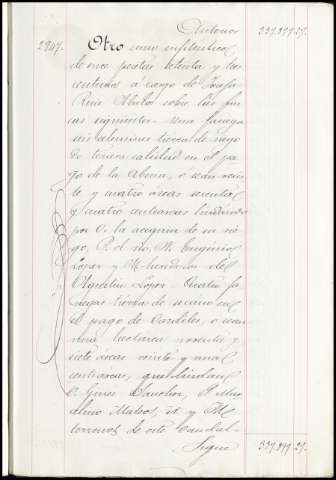 Anterior 339.899.59.
2947. Otro censo enfitéutico
de once pesetas setenta y tres
centimos á cargo de Josefa
Ruiz Abulos sobre las fin
cas siguientes. una fanega
seis celemines tierra de riego
de tercera calidad en el pa
go de la Alma, o sean vein
te y cuatro areas sesenta
y cuatro centiareas lindando
por O. la acequia de su rie
go, P. el rio, N. Eugenio
Lopez y M. herederos de
Agustin Lopez. Cuatro fa
negas tierra de secano en
el pago de Cardiles, o sean
una hectárea noventa y
siete áreas veinte y una
centiareas, que lindan
O. Ginés Sanchez, P.
Mateos, N. y M.
terrenos de este Caudal.
Sigue 339.899.59.